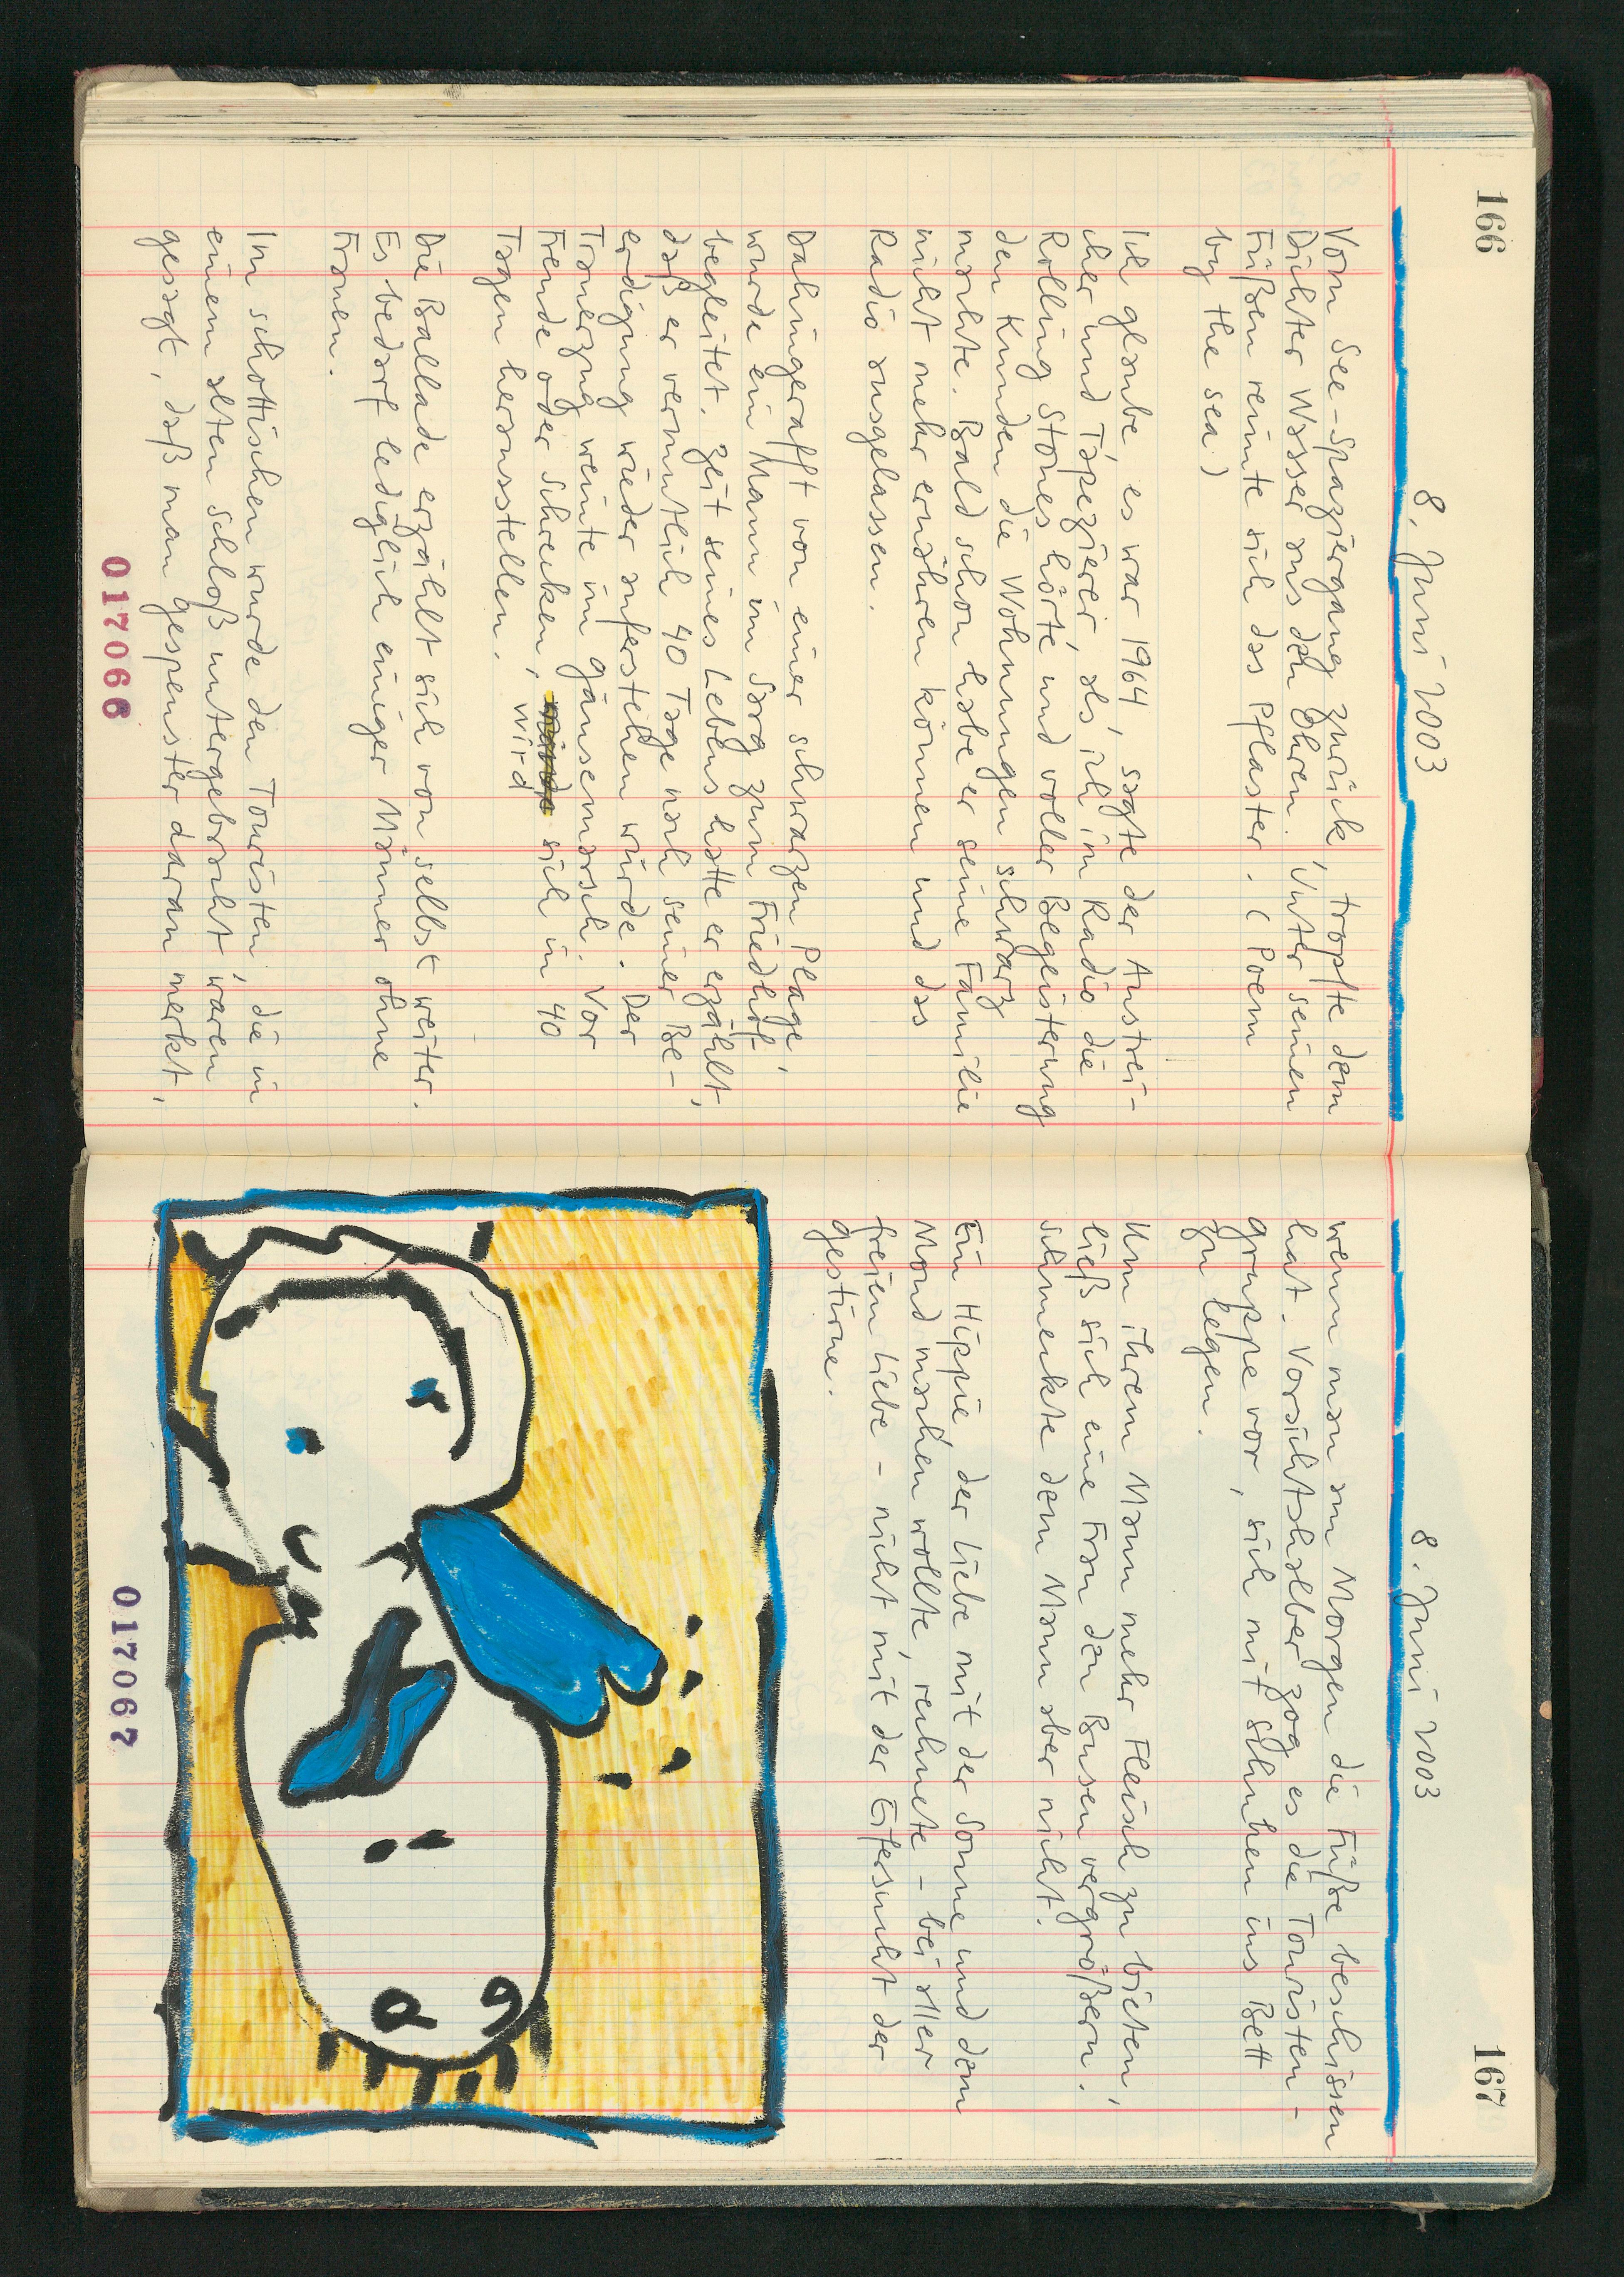 166
8. Juni 2003
Vom See-Spaziergang zurück, tropfte dem
Dichter Wasser aus den Ohren. Unter seinen
Füßen reimte sich das Pflaster. (Poem
by the sea)
Ich glaube, es war 1964, sagte der Anstrei-
cher und Tapezierer, als ich im Radio die
Rolling Stones hörte und voller Begeisterung
den Kunden die Wohnungen schwarz
malte. Bald schon habe er seine Familie
nicht mehr ernähren können und das
Radio ausgelassen.
Dahingerafft von einer schwarzen Plage,
wurde ein Mann im Sarg zum Friedhof
begleitet. Zeit seines Lebens hatte er erzählt,
daß er vermutlich 40 Tage nach seiner Be-
erdigung wieder auferstehen würde. Der
Trauerzug weinte im Gänsemarsch. Vor
Freude oder Schrecken, würde sich in 40
wird
Tagen herausstellen.
Die Ballade erzählt sich von selbst weiter.
Es bedarf lediglich einiger Männer ohne
Frauen.
Im schottischen wurde den Touristen, die in
einem alten Schloß untergebracht waren
gesagt, daß man Gespenster daran merkt,
017066
167
8. Juni 2003
wenn man am Morgen die Füße beschissen
hat. Vorsichtshalber zog es die Touristen-
gruppe vor, sich mit Schuhen ins Bett
zu legen.
Um ihrem Mann mehr Fleisch zu bieten,
ließ sich eine Frau den Busen vergrößern.
schmeckte dem Mann aber nicht.
Ein Hippie, der Liebe mit der Sonne und dem
Mond machen wollte, rechnete – bei aller
freien Liebe – nicht mit der Eifersucht der
Gestirne.
017067